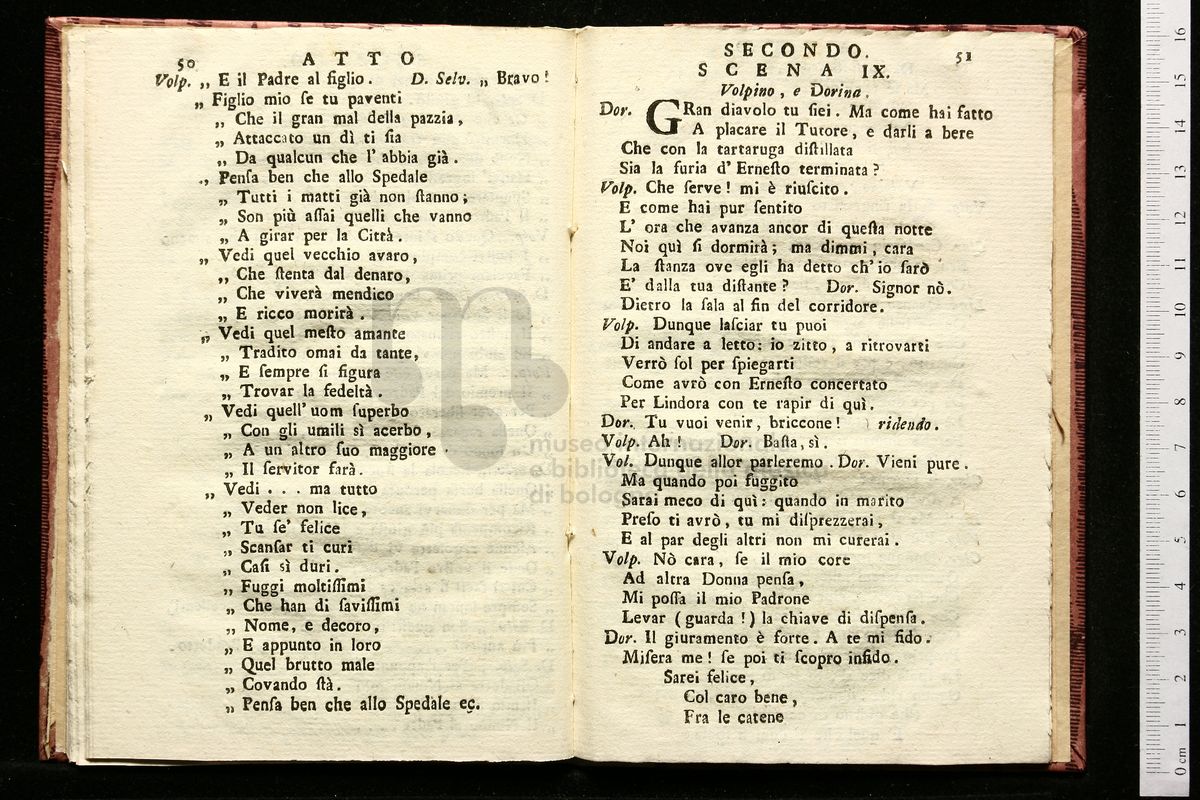 50 ATTO
Volp. „ E il Padre al figlio. D. Selv. „ Bravo!
„ Figlio mio ſe tu paventi
„ Che il gran mal della pazzia,
„ Attaccato un dì ti ſia
„ Da qualcun che l' abbia già.
„ Penſa ben che allo Spedale
„ Tutti i matti già non ſtanno;
„ Son più aſſai quelli che vanno
„ A girar per la Città.
„ Vedi quel vecchio avaro,
„ Che ſtenta dal denaro,
„ Che viverà mendico
„ E ricco morirà.
„ Vedi quel meſto amante
„ Tradito omai da tante,
„ E ſempre ſi figura
„ Trovar la fedeltà.
„ Vedi quell' uom ſuperbo
„ Con gli umili sì acerbo,
„ A un altro ſuo maggiore
„ Il ſervitor farà.
„ Vedi . . . ma tutto
„ Veder non lice,
„ Tu ſe' felice
„ Scanſar ti curi
„ Caſi sì duri.
„ Fuggi moltiſſimi
„ Che han di ſaviſſimi
„ Nome, e decoro,
„ E appunto in loro
„ Quel brutto male
„ Covando ſtà.
„ Penſa ben che allo Spedale ec.
SECONDO. 51
SCENA IX.
Volpino, e Dorina.
Dor. GRan diavolo tu ſiei. Ma come hai fatto
A placare il Tutore, e darli a bere
Che con la tartaruga diſtillata
Sia la furia d' Erneſto terminata?
Volp. Che ſerve! mi è riuſcito.
E come hai pur ſentito
L' ora che avanza ancor di queſta notte
Noi quì ſi dormirà; ma dimmi, cara
La ſtanza ove egli ha detto ch' io ſarò
E' dalla tua diſtante? Dor. Signor nò.
Dietro la ſala al fin del corridore.
Volp. Dunque laſciar tu puoi
Di andare a letto: io zitto, a ritrovarti
Verrò ſol per ſpiegarti
Come avrò con Erneſto concertato
Per Lindora con te rapir di quì.
Dor. Tu vuoi venir, briccone! ridendo.
Volp. Ah! Dor. Baſta, sì.
Vol. Dunque allor parleremo. Dor. Vieni pure.
Ma quando poi fuggito
Sarai meco di quì: quando in marito
Preſo ti avrò, tu mi diſprezzerai,
E al par degli altri non mi curerai.
Volp. Nò cara, ſe il mio core
Ad altra Donna penſa,
Mi poſſa il mio Padrone
Levar (guarda!) la chiave di diſpenſa.
Dor. Il giuramento è forte. A te mi fido.
Miſera me! ſe poi ti ſcopro infido.
Sarei felice,
Col caro bene,
Fra le catene
museo
e biblio
di bolo
0 cm 1 2 3 4 5 6 7 8 9 10 11 12 13 14 15 16